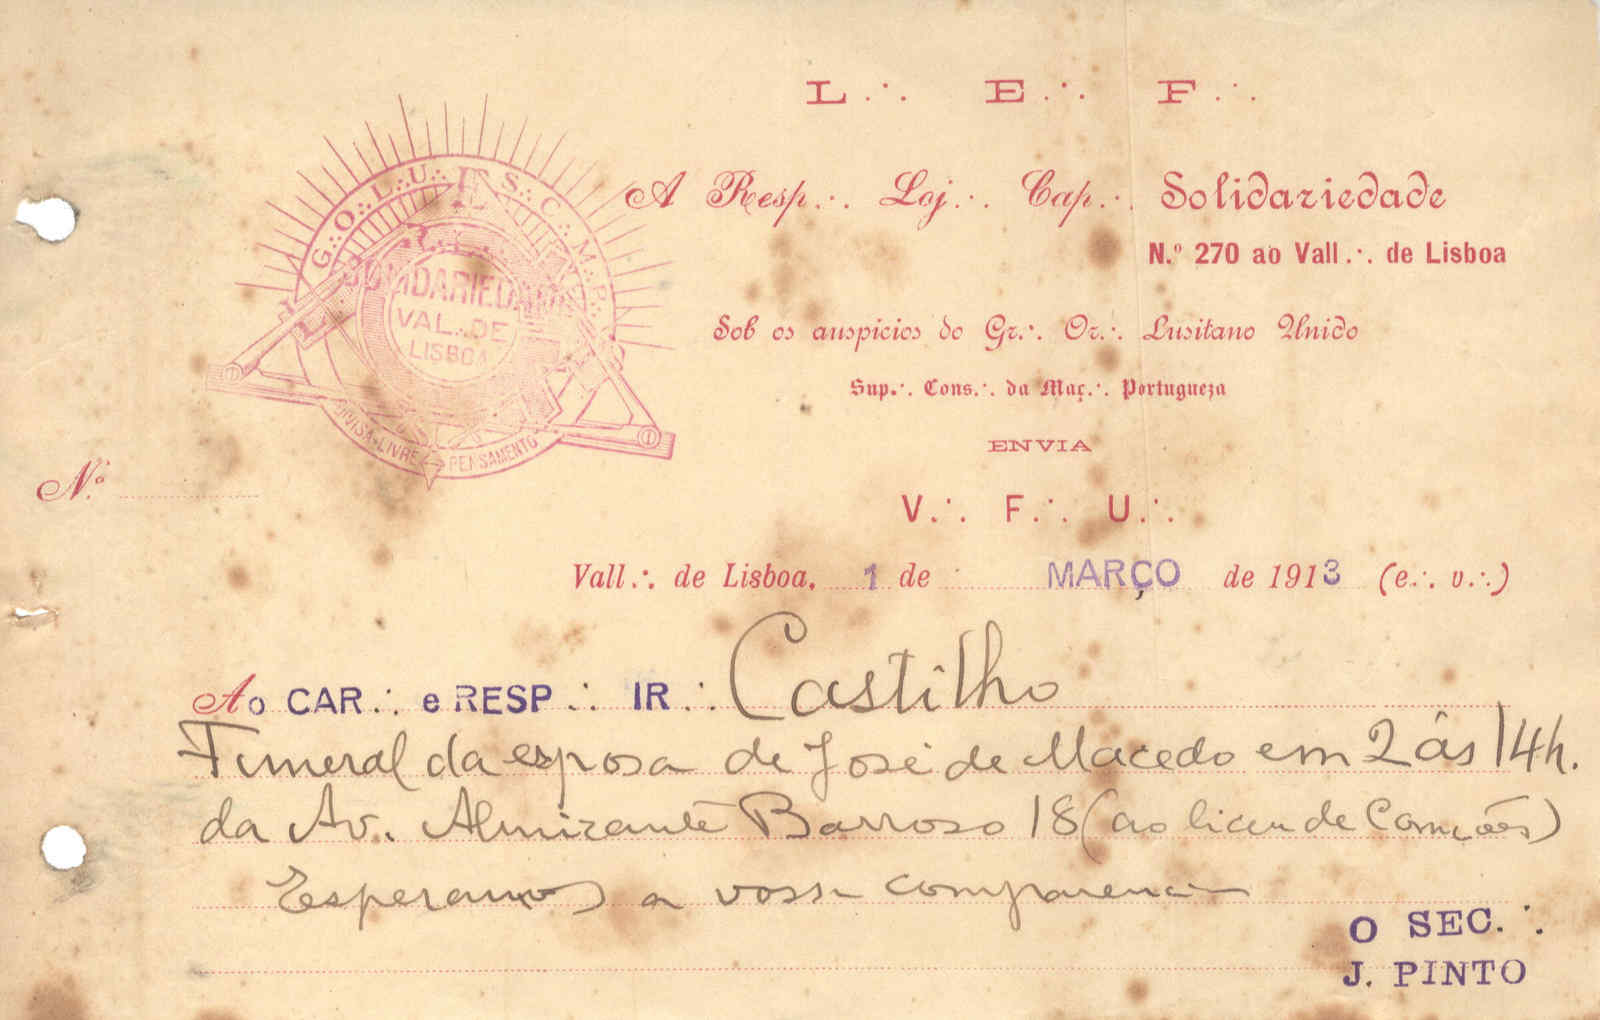 L∴ E∴ F∴
A Resp∴ Loj∴ Cap∴ Solidariedade
N.º 270 ao Vall∴ de Lisboa
Sob os auspicios do Gr∴ Or∴ Lusitano Unido
Sup∴ Cons∴ da Maç∴ Portugueza
ENVIA
V∴ F∴ U∴
G∴O∴L∴U∴ S∴C∴M∴P∴
R∴L∴
SOLIDARIEDADE
VAL∴DE
LISBOA
DIVISA-LIVRE PENSAMENTO
N.º
Vall∴ de Lisboa, 1 de MARÇO de 1913 (e∴ v∴)
Ao CAR∴ e RESP∴ IR∴ Castilho
Funeral da esposa de José de Macedo em 2 ás 14h.
da Av. Almirante Barroso 18 (ao liceu de Camões)
Esperamos a vossa comparencia
O SEC∴
J. PINTO